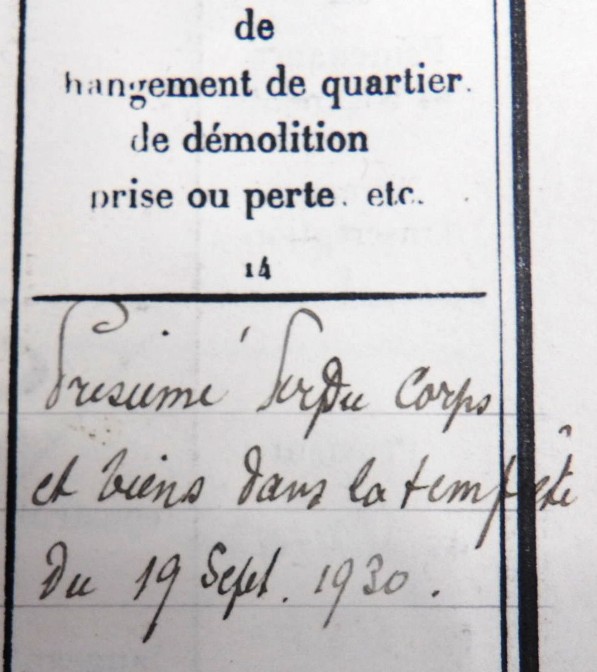 de
hangement de quartier.
de démolition
prise ou perte. etc.
14
Presumé Perdu Corps
et biens dans la tempête
Du 19 Sept. 1930.